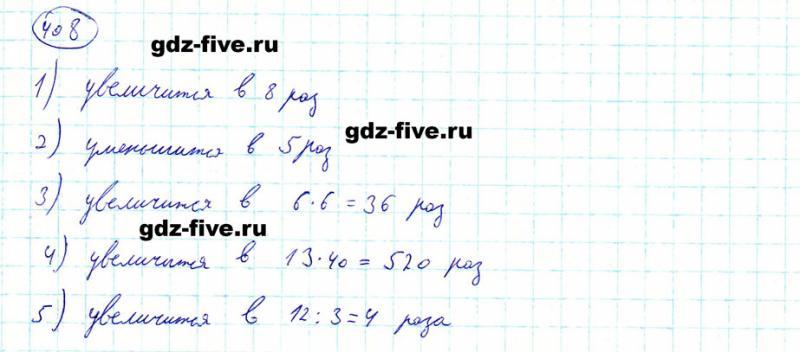 408
gdz-five.ru
1) увеличится в 8 раз
gdz-five.ru
2) уменьшится в 5 раз
3) увеличится в 6·6=36 раз
gdz-five.ru
4) увеличится в 13·40=520 раз
5) увеличится в 12:3=4 раза